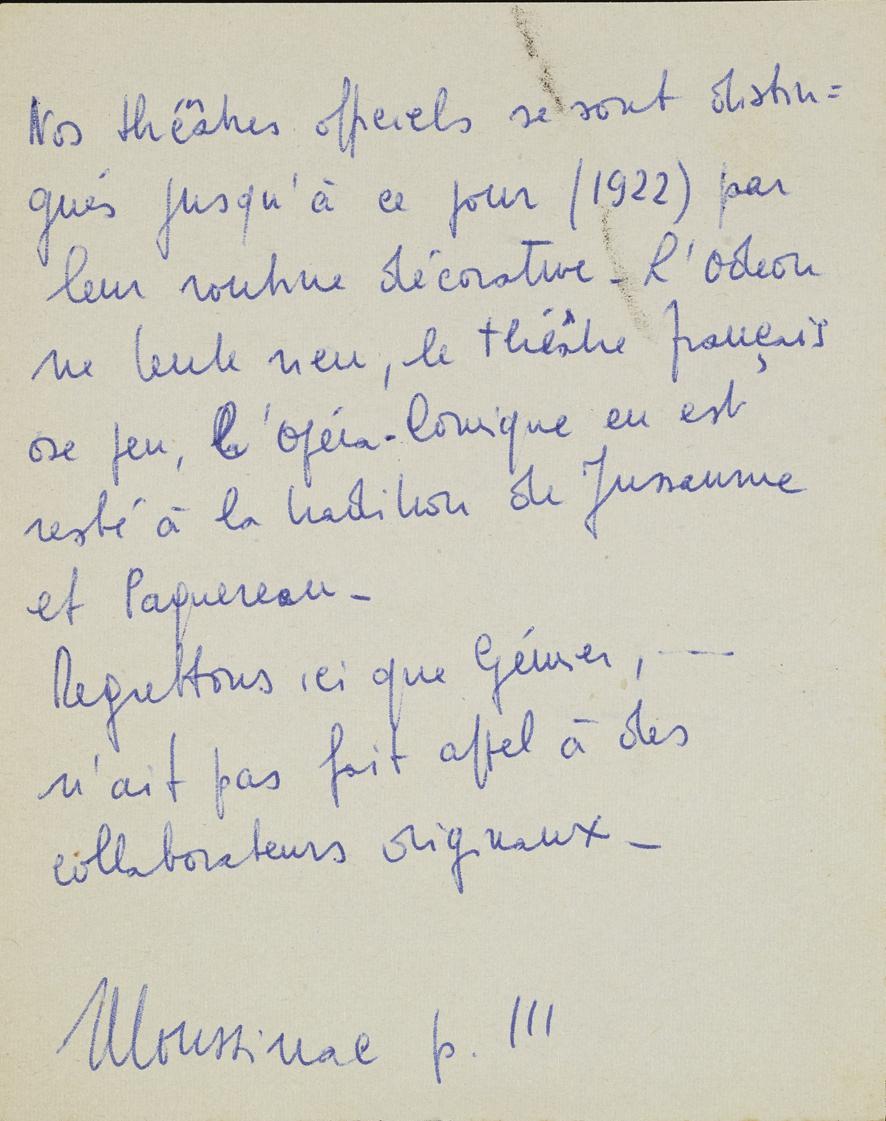 Nos théâtres officiels se sont distin=
gués jusqu'à ce jour (1922) par
leur routine décorative - L'Odéon
ne tente rien, le théâtre français
ose peu, l'Opéra-Comique en est
resté à la tradition de Jusseaume
et Paquereau -
Regrettons ici que Gémier, —
n'ait pas fait appel à des
collaborateurs originaux -
Moussinac p. 111